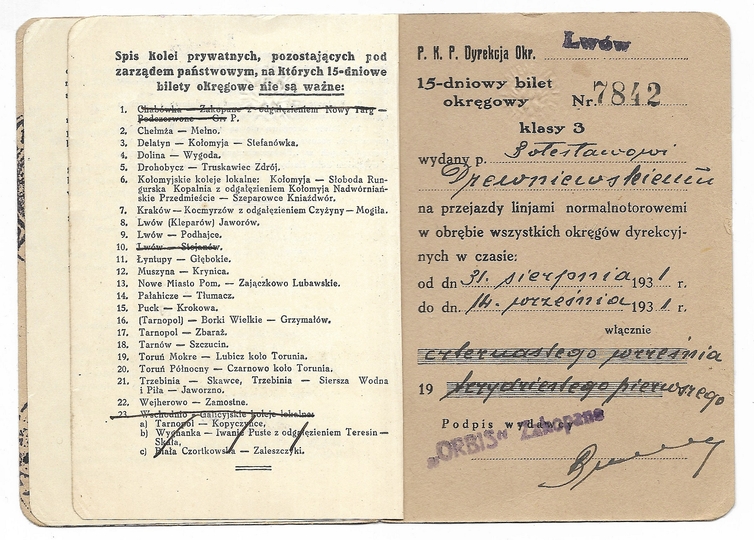 Spis kolei prywatnych, pozostających pod
zarządem państwowym, na których 15-dniowe
bilety okręgowe nie są ważne:
1. Chabówka — Zakopane z odgałęzieniem Nowy Targ —
Podczerwone — Gr P.
2. Chełmża — Mełno.
3. Delatyn — Kołomyja — Stefanówka.
4. Dolina — Wygoda.
5. Drohobycz — Truskawiec Zdrój.
6. Kołomyjskie koleje lokalne: Kołomyja — Słoboda Run-
gurska Kopalnia z odgałęzieniem Kołomyja Nadwórniań-
skie Przedmieście — Szeparowce Kniaźdwór.
7. Kraków — Kocmyrzów z odgałęzieniem Czyżyny — Mogiła.
8. Lwów (Kleparów) Jaworów.
9. Lwów — Podhajce.
10. Lwów — Stojanów.
11. Łyntupy — Głębokie.
12. Muszyna — Krynica.
13. Nowe Miasto Pom. — Zajączkowo Lubawskie.
14. Pałahicze — Tłumacz.
15. Puck — Krokowa.
16. (Tarnopol) — Borki Wielkie — Grzymałów.
17. Tarnopol — Zbaraż.
18. Tarnów — Szczucin.
19. Toruń Mokre — Lubicz koło Torunia.
20. Toruń Północny — Czarnowo koło Torunia.
21. Trzebinia — Skawce, Trzebinia — Siersza Wodna
i Piła — Jaworzno.
22. Wejherowo — Zamostne.
23. Wschodnio — Galicyjskie koleje lokalne:
a) Tarnopol — Kopyczyńce,
b) Wygnanka — Iwanie Puste z odgałęzieniem Teresin —
Skała,
c) Biała Czortkowska — Zaleszczyki.
P. K. P. Dyrekcja Okr. Lwów
15-dniowy bilet
okręgowy Nr. 7842
klasy 3
wydany p. Bolesławowi
Drewniewskiemu
na przejazdy linjami normalnotorowemi
w obrębie wszystkich okręgów dyrekcyj-
nych w czasie:
od dn. 31. sierpnia 1931 r.
do dn. 14. września 1931 r.
włącznie
czternastego września
19 trzydziestego pierwszego
Podpis wydawcy
"ORBIS" Zakopane